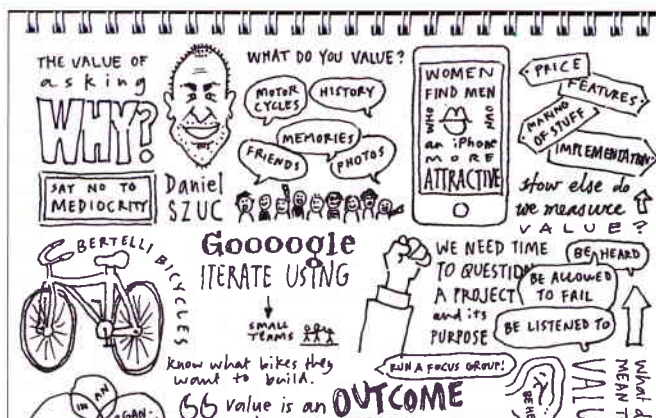 THE VALUE OF
asking
WHY?
SAY NO TO
MEDIOCRITY
Daniel
SZUC
WHAT DO YOU VALUE?
MOTOR
CYCLES
HISTORY
MEMORIES
FRIENDS
PHOTOS
WOMEN
FIND MEN
WHO
OWN
an iPhone
MORE
ATTRACTIVE
PRICE
FEATURES
MAKING
OF STUFF
IMPLEMENTATION
How else do
we measure
VALUE?
BERTELLI BICYCLES
Goooogle
ITERATE USING
SMALL
TEAMS
know what bikes they
want to build.
WE NEED TIME
TO QUESTION
A PROJECT
and its
PURPOSE
BE HEARD
BE ALLOWED
TO FAIL
BE LISTENED TO
RUN A FOCUS GROUP!
IN AN
66 value is an OUTCOME
What d
MEAN
VALU